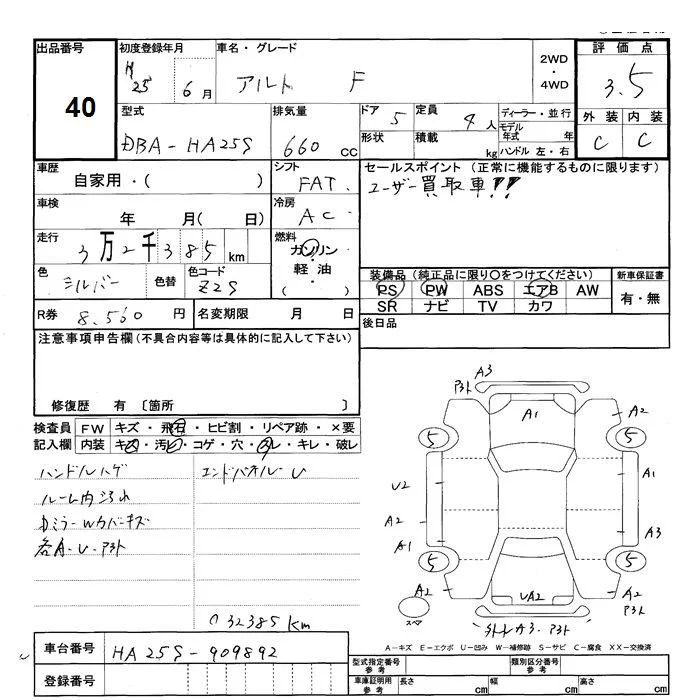 出品番号
40
初度登録年月
H25 6月
車名・グレード
アルト F
2WD
・
4WD
評価点
3.5
外装 内装
C C
型式
DBA-HA25S
排気量
660 cc
ドア 5
形状
定員 4人
積載 kg
ディーラー・並行
モデル年式 年
ハンドル 左・右
車歴
自家用・( )
シフト
FAT
車検
年 月( 日)
冷房
AC
走行
3万2千385km
燃料
ガソリン
・
軽油
( )
色
シルバー
色替
色コード
Z2S
R券 8.560 円
名変期限 月 日
セールスポイント (正常に機能するものに限ります)
ユーザー買取車!!
装備品(純正品に限り〇をつけてください)
PS PW ABS エアB AW
SR ナビ TV カワ
新車保証書
有・無
後日品
注意事項申告欄(不具合内容等は具体的に記入して下さい)
修復歴 有 〔箇所 〕
検査員記入欄
FW キズ・飛石・ヒビ割・リペア跡・×要
内装 キズ・汚レ・コゲ・穴・スレ・キレ・破レ
ハンドルハゲ
ルーム内汚れ
各A・U・アト
U
032385km
車台番号 HA25S-909892
登録番号
A3
アト
A1
A2
アト
5
5
U2
A1
A2
A3
A1
5
5
A2
UA2
A2
アト
スペア
A3・アト
A-キズ E-エクボ U-凹み W-補修跡 S-サビ C-腐食 XX-交換済
型式指定番号
参考
類別区分番号
参考
車庫証明用
参考
長さ cm
幅 cm
高さ cm